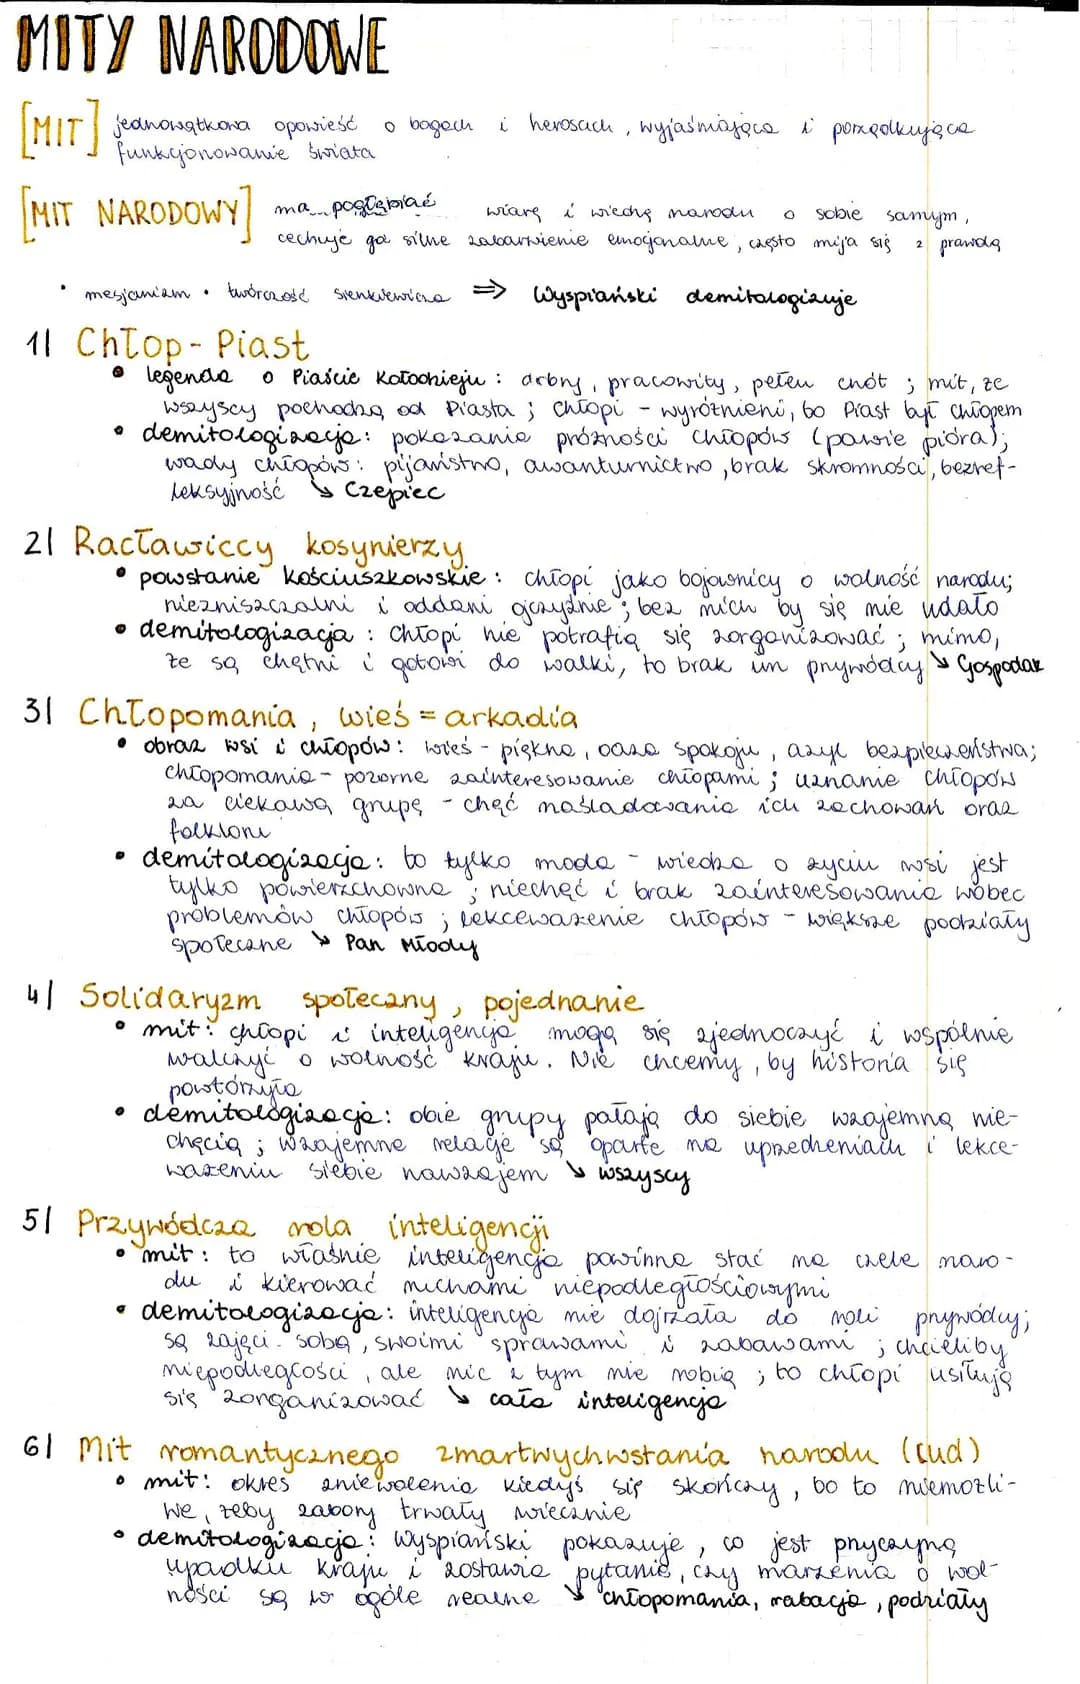 MITY NARODOWE
[MIT] jednowątkowa opowieść o bogach i herosach, wyjaśniająca i porządkująca
funkcjonowanie świata
[MIT NARODOWY] ma pogłębiać wiarę i wiedzę narodu o sobie samym,
cechuje go silne zabarwienie emocjonalne, często mija się z prawdą
• mesjanizm • twórczość Sienkiewicza ⇒ Wyspiański demitologizuje
1| Chłop - Piast
• legenda o Piaście Kołodzieju: dobry, pracowity, pełen cnót; mit, że
wszyscy pochodzą od Piasta; chłopi - wyróżnieni, bo Piast był chłopem
• demitologizacja: pokazanie próżności chłopów (pawie pióra);
wady chłopów: pijaństwo, awanturnictwo, brak skromności, bezref-
leksyjność ↘ Czepiec
2| Racławiccy kosynierzy
• powstanie Kościuszkowskie: chłopi jako bojownicy o wolność narodu;
niezniszczalni i oddani ojczyźnie; bez nich by się nie udało
• demitologizacja: chłopi nie potrafią się zorganizować; mimo,
że są chętni i gotowi do walki, to brak im przywódcy ↘ Gospodarz
3| Chłopomania, wieś = arkadia
• obraz wsi i chłopów: wieś - piękna, oaza spokoju, azyl bezpieczeństwa;
chłopomania - pozorne zainteresowanie chłopami; uznanie chłopów
za ciekawą grupę - chęć naśladowania ich zachowań oraz
folkloru
• demitologizacja: to tylko moda - wiedza o życiu wsi jest
tylko powierzchowna; niechęć i brak zainteresowania wobec
problemów chłopów; lekceważenie chłopów - większe podziały
społeczne ↘ Pan Młody
4| Solidaryzm społeczny, pojednanie
• mit: chłopi i inteligencja mogą się zjednoczyć i wspólnie
walczyć o wolność kraju. Nie chcemy, by historia się
powtórzyła
• demitologizacja: obie grupy pałają do siebie wzajemną nie-
chęcią; wzajemne relacje są oparte na uprzedzeniach i lekce-
ważeniu siebie nawzajem ↘ wszyscy
5| Przywódcza rola inteligencji
• mit: to właśnie inteligencja powinna stać na czele naro-
du i kierować ruchami niepodległościowymi
• demitologizacja: inteligencja nie dojrzała do roli przywódcy;
są zajęci sobą, swoimi sprawami i zabawami; chcieliby
niepodległości, ale nic z tym nie robią; to chłopi usiłują
się zorganizować ↘ cała inteligencja
6| Mit romantycznego zmartwychwstania narodu (cud)
• mit: okres zniewolenia kiedyś się skończy, bo to niemożli-
we, żeby zabory trwały wiecznie
• demitologizacja: Wyspiański pokazuje, co jest przyczyną
upadku kraju i zostawia pytanie, czy marzenia o wol-
ności są w ogóle realne ↘ chłopomania, rabacja, podziały